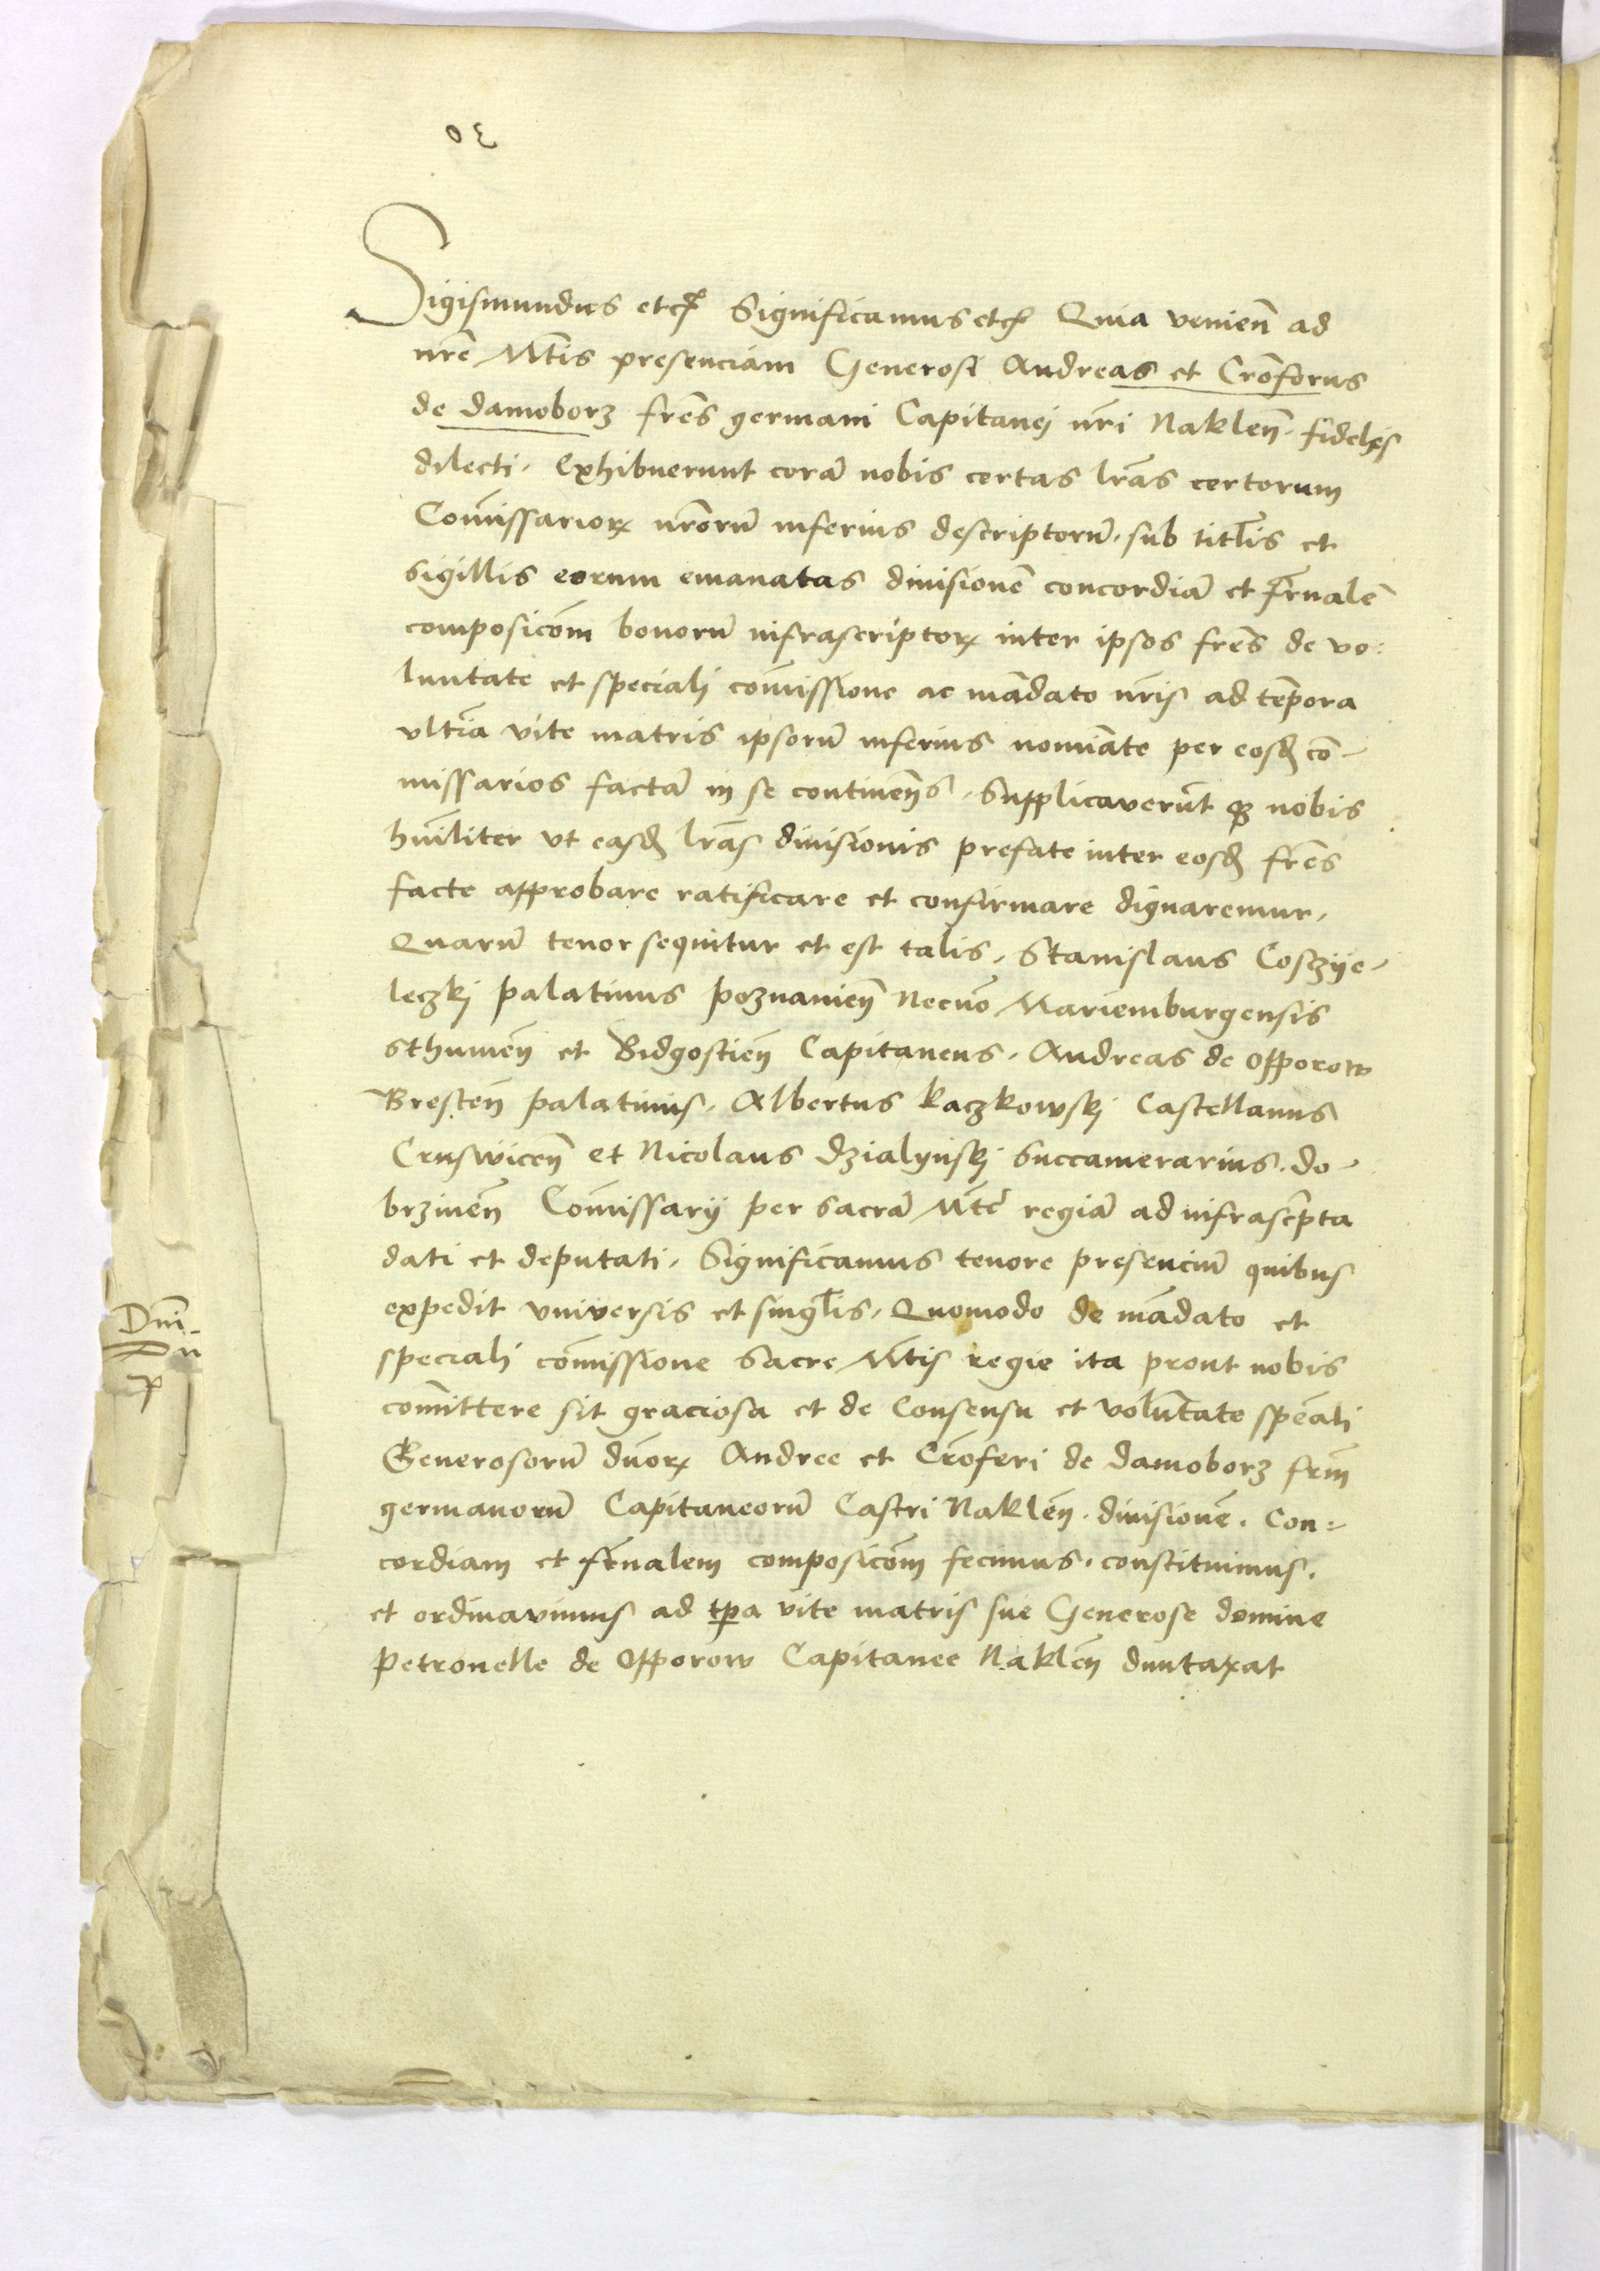 Sigismundus etc̃ Significamus etc̃ Quia venieñ ad
nr̃e Mt̃is presenciam Generosi Andreas et Cr̃oforus
de Damoborz fr̃es germani Capitanej nr̃i Nakleñ. fideles
dilecti. Exhibuerunt corã nobis certas lr̃as certorum
Com̃issarioꝝ nr̃orũ inferius descriptorũ. sub titl̃is et
sigillis eorum emanatas divisionẽ concordiã et fr̃nalẽ
composicõm bonorũ infrascriptoꝝ inter ipsos fr̃es de vo:
luntate et specialj com̃issione ac mãdato nr̃is ad tẽpora
vltĩa vite matris ipsorũ inferius nomĩate per eosd̃ cõ-
missarios factã in se contineñs. Supplicaverũt qꝫ nobis
hum̃iliter vt easd̃ lr̃as divisionis prefate inter eosd̃ fr̃es
facte approbare ratificare et confirmare dignaremur.
Quarũ tenor sequitur et est talis. Stanislaus Cosczye-
leczkj palatinus poznanieñ Necnõ Mariemburgensis
sthumeñ et Bidgostieñ Capitaneus. Andreas de Opporow
Bresteñ palatinus. Albertus kaczkowskj Castellanus
Cruswiceñ et Nicolaus Dzialynskj Succamerarius. do-
brzineñ Com̃issarij per sacrã Mt̃ẽ regiã ad infrascr̃pta
dati et deputati. Significamus tenore presenciũ quibus
expedit vniversis et singl̃is. Quomodo de mãdato et
specialj com̃issione Sacre Mt̃is regie ita prout nobis
com̃ittere sit graciosa et de Consensu et volũtate spẽali
Generosorũ dñoꝝ Andree et Cr̃oferi de Damoborz fr̃m
germanorũ Capitaneorũ Castri Nakleñ. divisionẽ. Con:
cordiam et fr̃nalem composicõm fecimus. constituimus.
et ordinavimus ad tp̃a vite matris sue Generose domine
Petronelle de Opporow Capitanee Nakleñ duntaxat